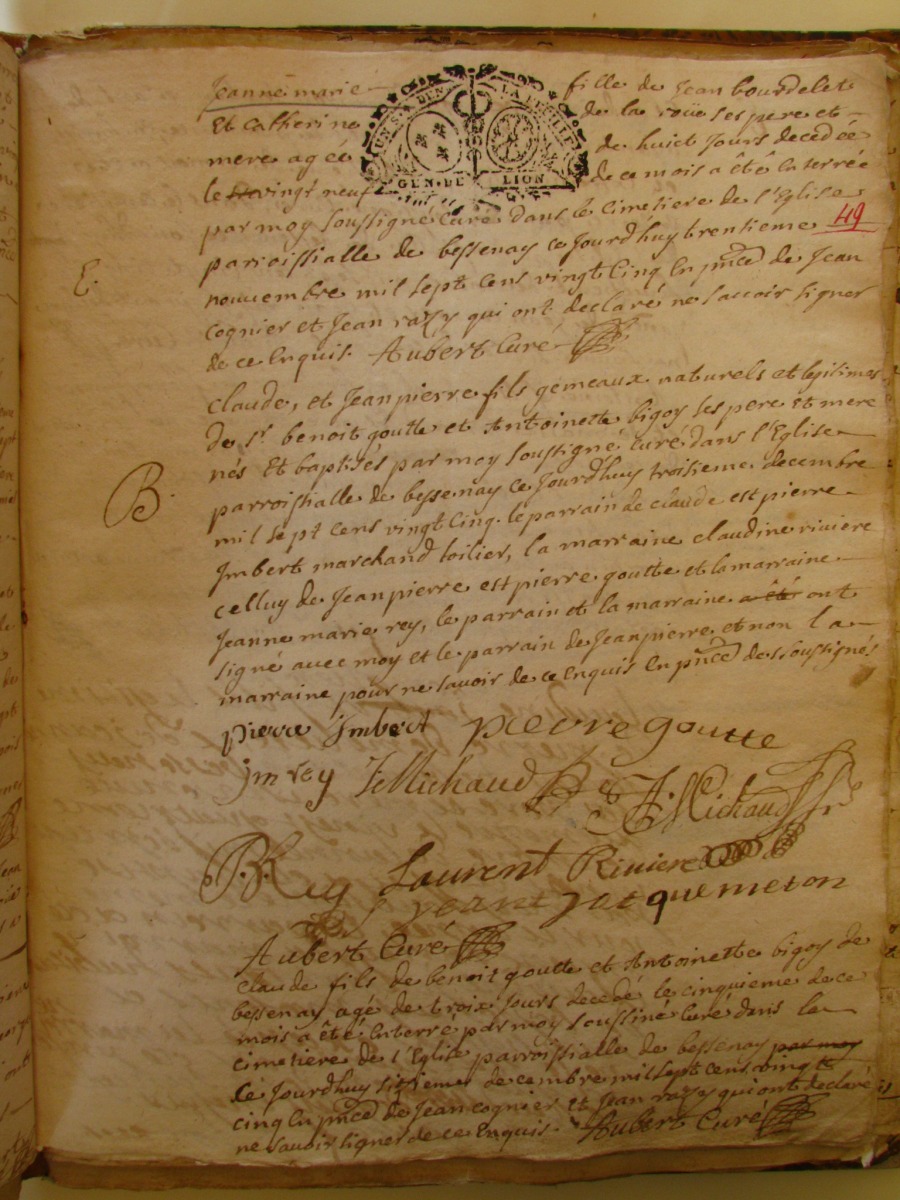 Jeanne marie fille de Jean bourdelet
Et Catherine de la roüe ses pere et
mere agée de huict Jours decedée
le vingt neuf de ce mois a êté Enterrée
par moy soussigné Curé dans le cimetiere de l'Eglise
49
parroissialle de bessenay ce Jourd'huy trentieme
E.
nouvembre mil sept cens vingt Cinq En pñce de Jean
cognier et Jean razy qui ont declaré ne sçavoir signer
de ce Enquis. Aubert Curé
claude, et Jeanpierre fils gemeaux naturels et legitimes
de Sr. benoit goutte et Antoinette bigoy ses pere Et mere
nés Et baptisés par moy soussigné Curé dans l'Eglise
B.
parroissialle de bessenay ce Jourd'huy troisieme decembre
mil sept cens vingt Cinq. le parrain de claude est pierre
Imbert marchand toilier, la marraine claudine riviere
celluy de Jeanpierre est pierre goutte et la marraine
Jeanne marie rey, le parrain et la marraine a êté ont
signé avec moy et le parrain de Jeanpierre et non la
marraine pour ne savoir de ce Enquis En pñce des soussignés
pierre Imbert pierre goutte
jm rey Michaud Michaud
Rey Laurent Riviere
jeant jacquemeton
Aubert Curé
Claude fils de benoit goutte et Antoinette bigoy de
bessenay agé de troix Jours decedé le cinquieme de ce
mois a êté Enterré par moy soussiné Curé dans la
cimetiere de l'Eglise parroissialle de bessenay par moy
Ce Jourdhuy sixieme decembre mil sept cens vingt
cinq En pñce de Jean cognier et Jean razy qui ont declaré
ne savoir signer de ce Enquis. Aubert Curé
GEN. DE LION